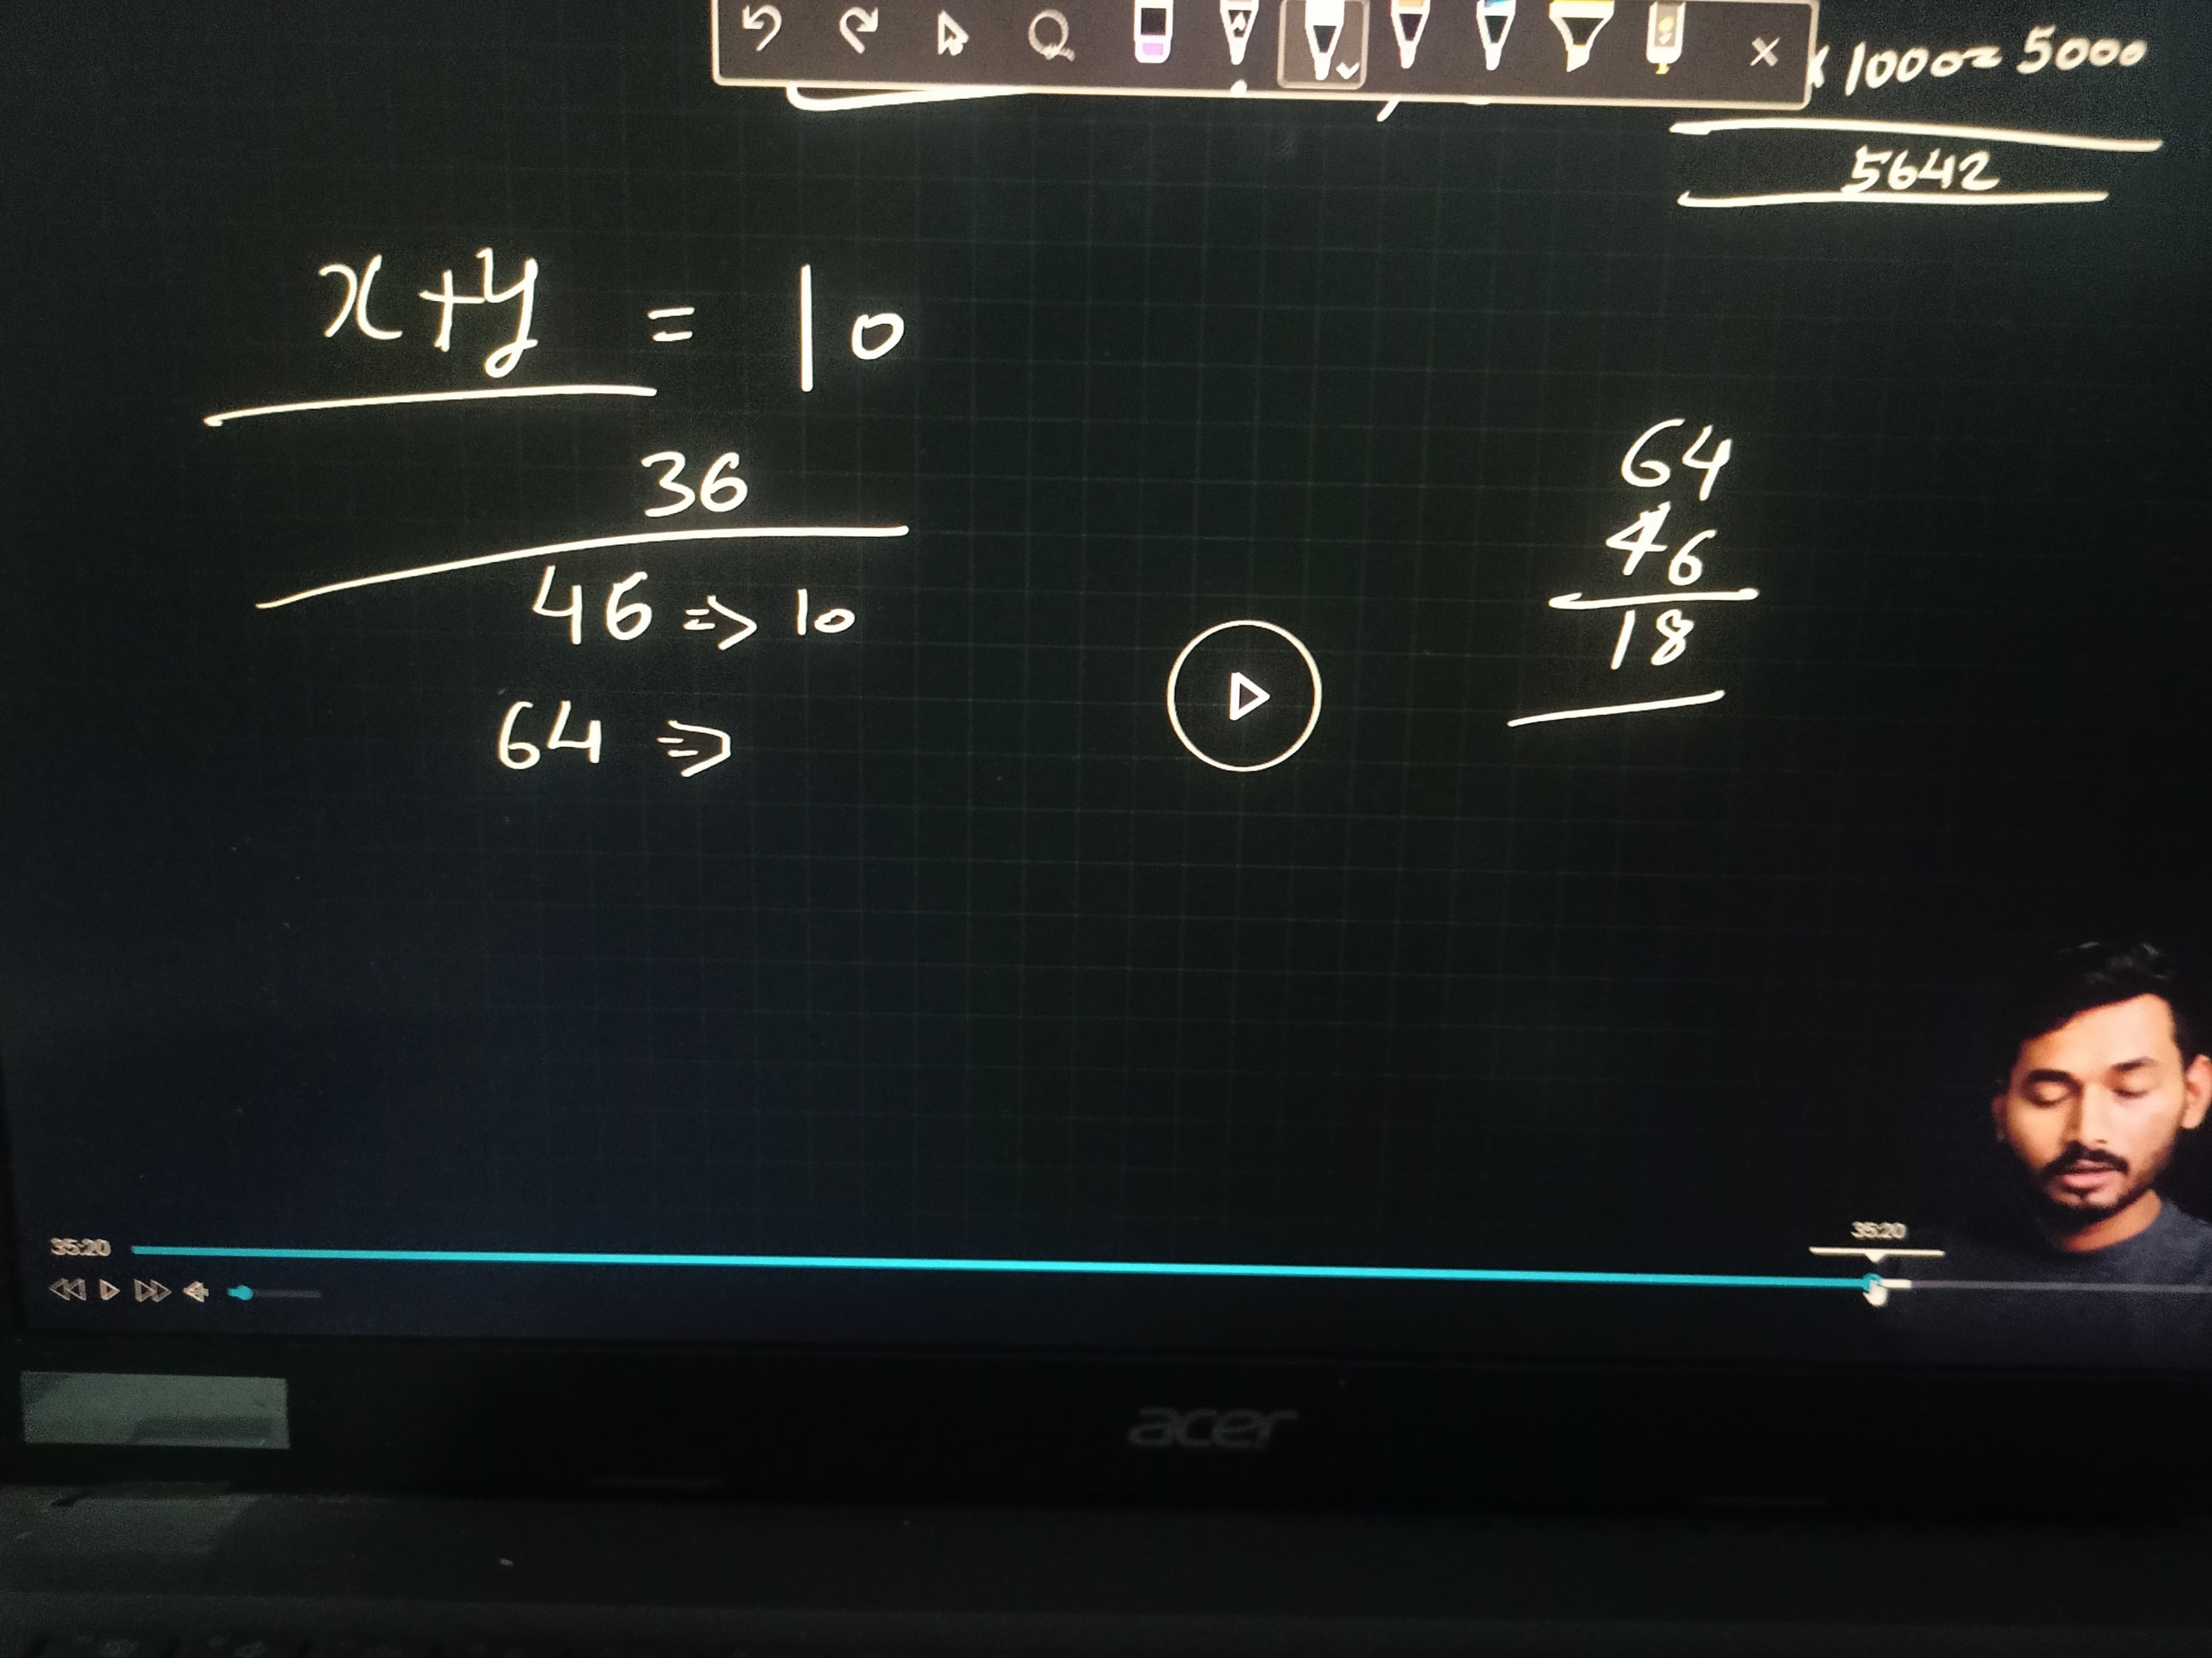 1000= 5000
5642
x+y = 10
36
46 => 10
64 =>
64
46
18
35:20
35:20
acer